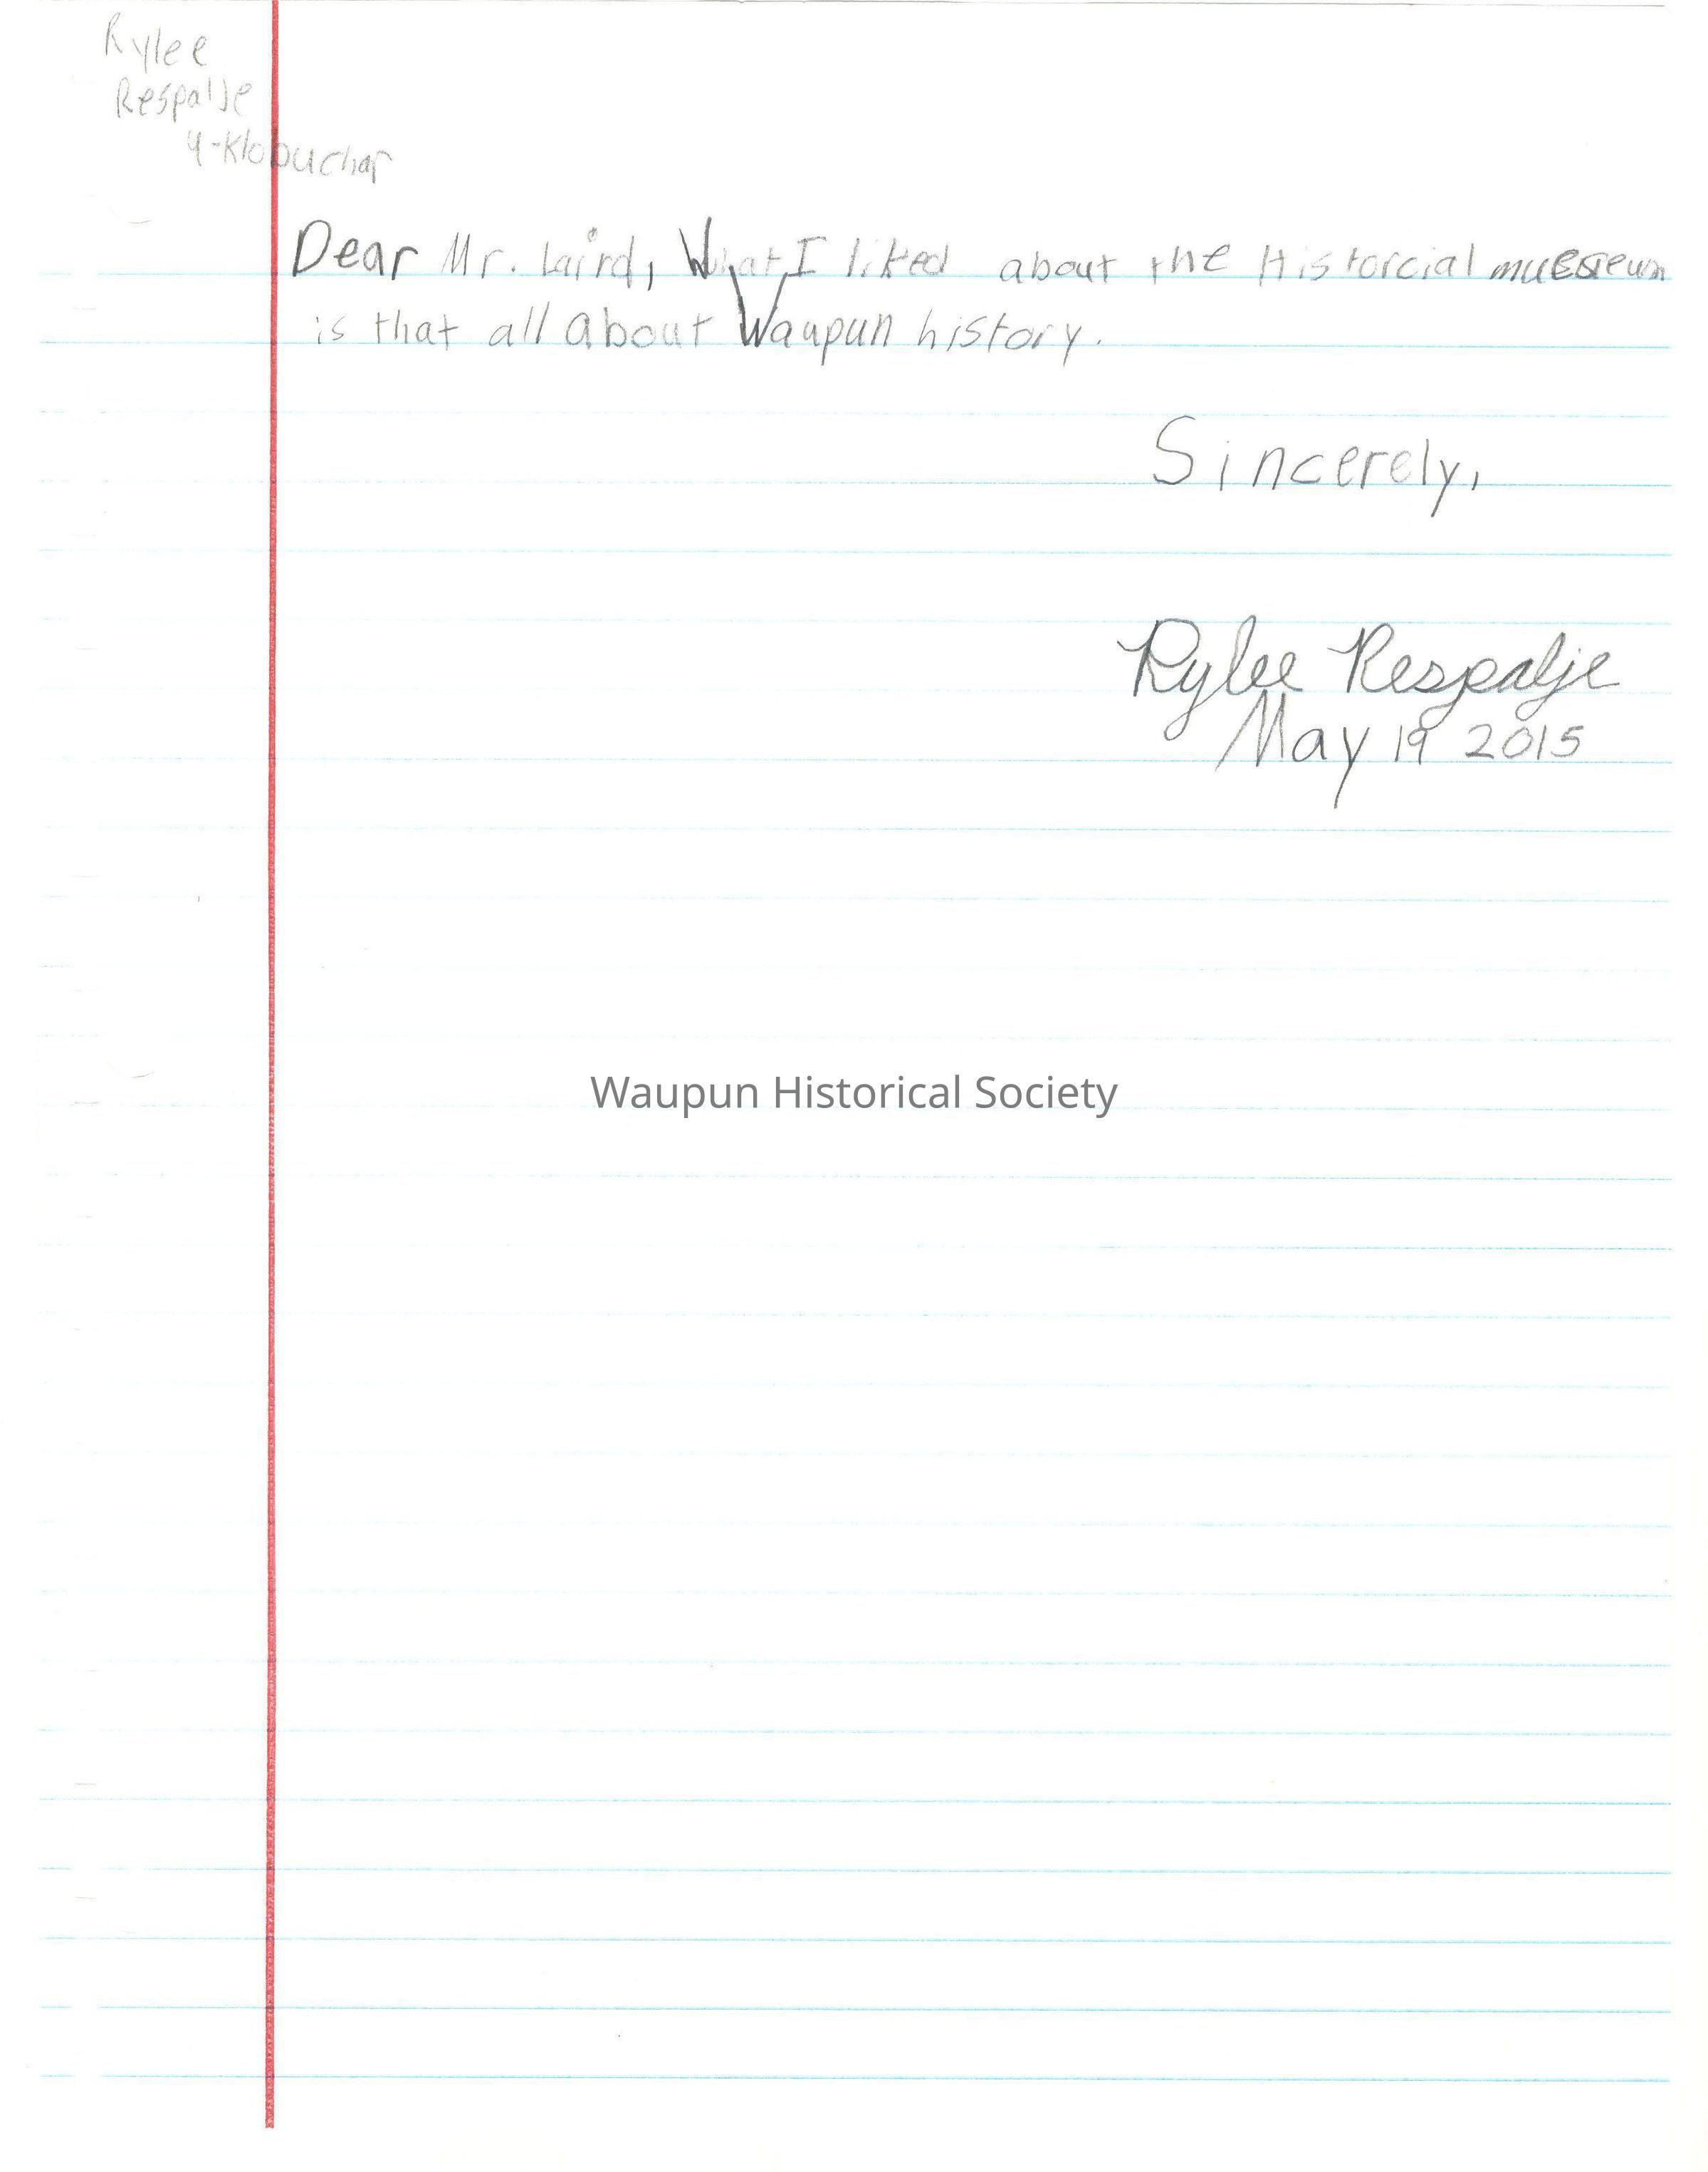 Rylee
Respalje
4-Klobuchar
Dear Mr. Laird, What I liked about the Historcial
is that all about Waupun history.
Sincerely,
Rylee Respalje
May 19 2015
Waupun Historical Society